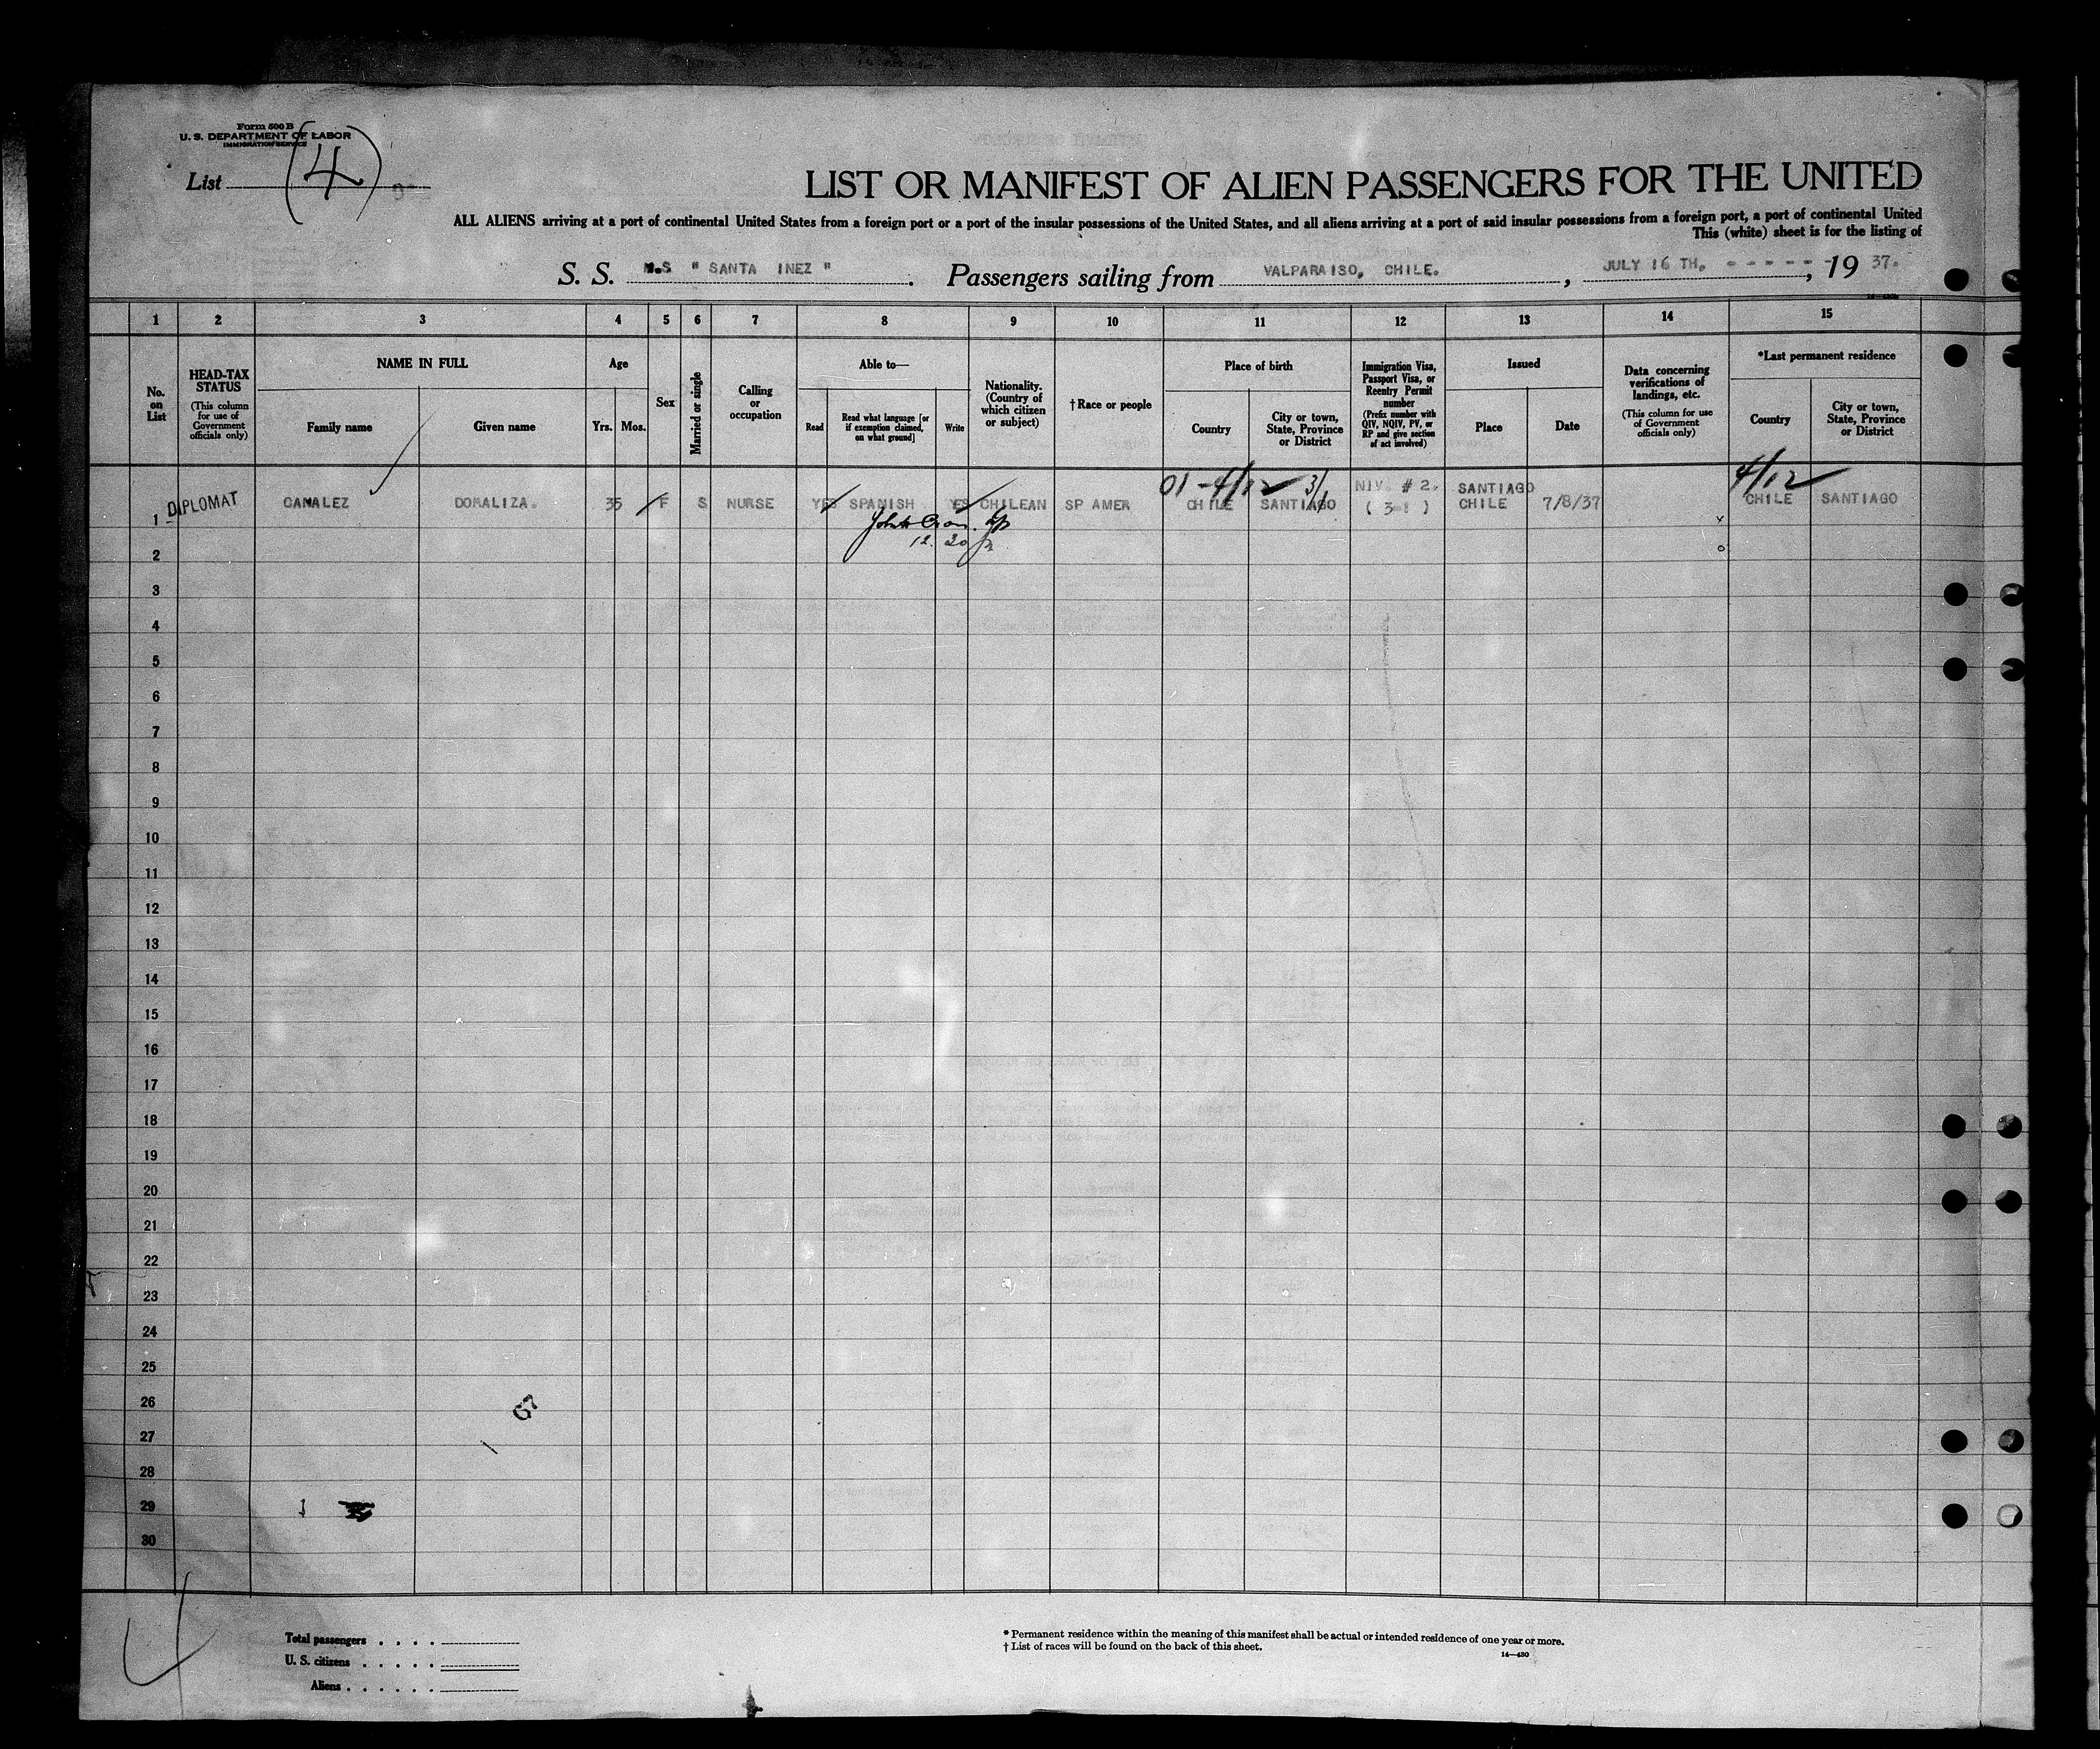 Form 500 B
U. S. DEPARTMENT OF LABOR
IMMIGRATION SERVICE
List (4)
LIST OR MANIFEST OF ALIEN PASSENGERS FOR THE UNITED
ALL ALIENS arriving at a port of continental United States from a foreign port or a port of the insular possessions of the United States, and all aliens arriving at a port of said insular possessions from a foreign port, a port of continental United
This (white) sheet is for the listing of
S. S. M.S " SANTA INEZ ". Passengers sailing from VALPARAISO, CHILE. , JULY 16 TH, - - - - - , 19 37.
1 2 3 4 5 6 7 8 9 10 11 12 13 14 15
No. on List
HEAD-TAX STATUS
(This column for use of Government officials only)
NAME IN FULL
Family name
Given name
Age
Yrs. Mos.
Sex
Married or single
Calling or occupation
Able to—
Read
Read what language [or if exemption claimed, on what ground]
Write
Nationality. (Country of which citizen or subject)
†Race or people
Place of birth
Country
City or town, State, Province or District
Immigration Visa, Passport Visa, or Reentry Permit number
(Prefix number with QIV, NQIV, PV, or RP and give section of act involved)
Issued
Place
Date
Data concerning verifications of landings, etc.
(This column for use of Government officials only)
*Last permanent residence
Country
City or town, State, Province or District
01-4/12 3/1 4/12
1 DIPLOMAT CANALEZ DORALIZA. 35 F S NURSE YES SPANISH YES CHILEAN SP AMER CHILE SANTIAGO NIV. # 2. SANTIAGO CHILE 7/8/37 CHILE SANTIAGO
12. 20
2
3
4
5
6
7
8
9
10
11
12
13
14
15
16
17
18
19
20
21
22
23
24
25
26
27
28
29
30
Total passengers . . . .
U. S. citizens . . . . .
Aliens . . . . . .
* Permanent residence within the meaning of this manifest shall be actual or intended residence of one year or more.
† List of races will be found on the back of this sheet.
14—430